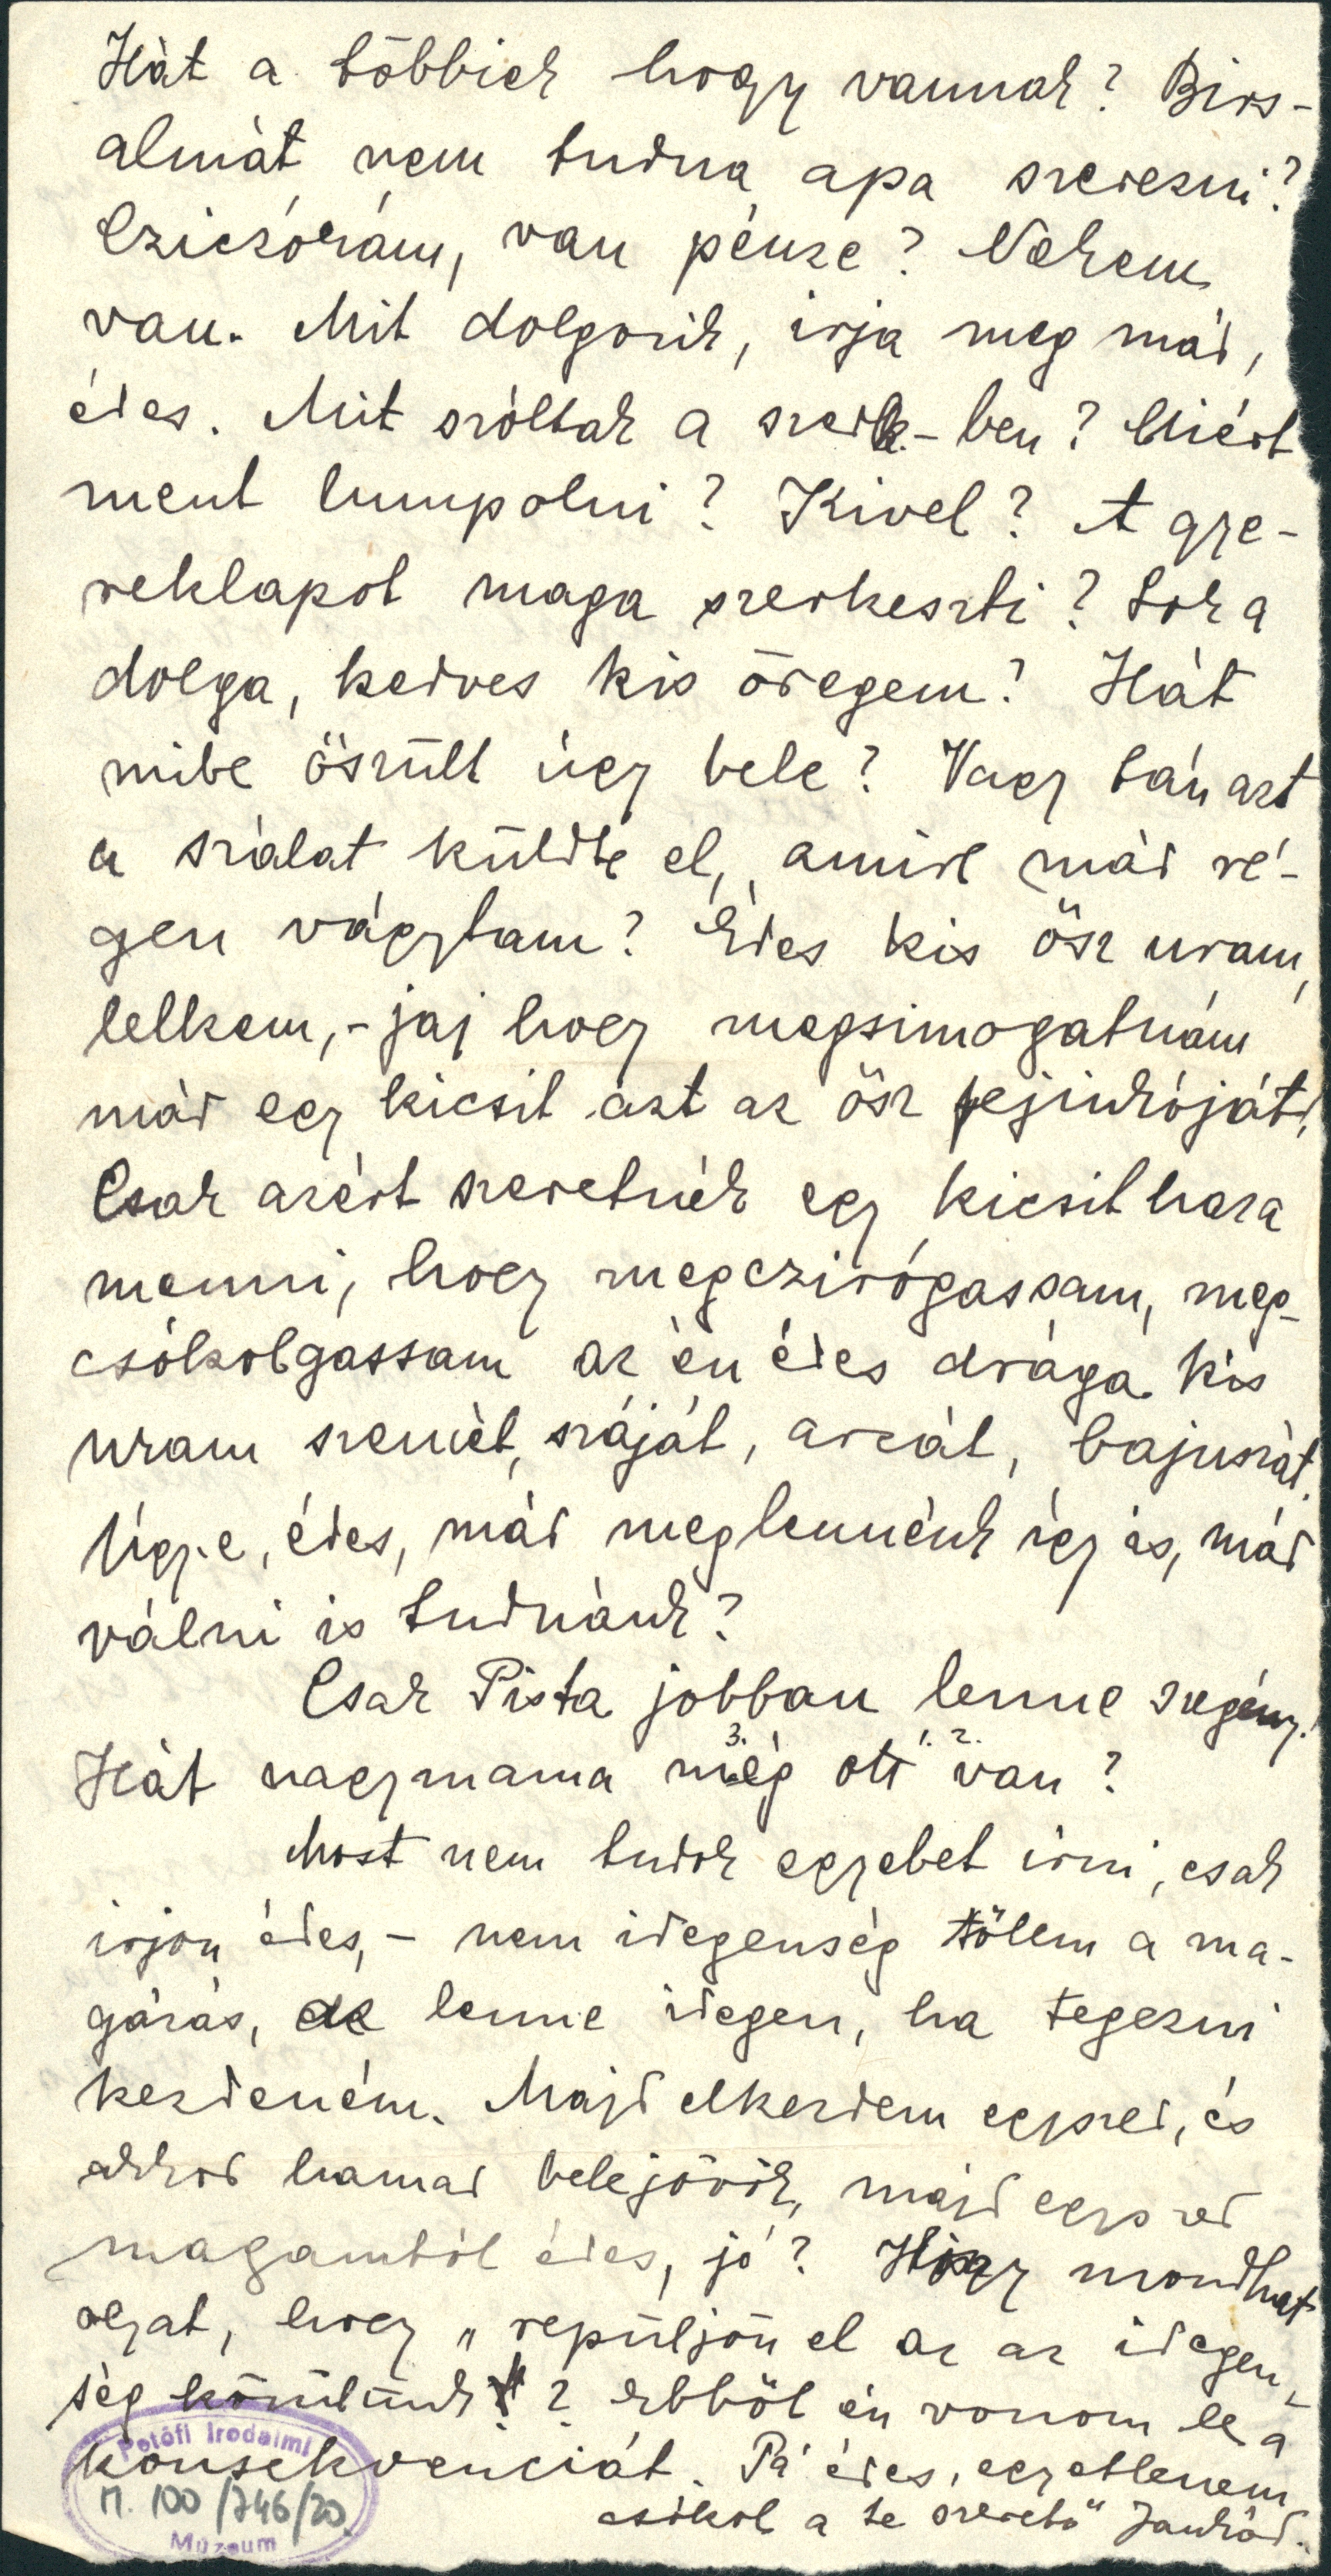 Hát a többiek hogy vannak? Birs-
almát nem tudna apa szerezni?
Czicókám, van pénze? Nekem
van. Mit dolgozik, irja meg már,
édes. Mit szóltak a szerk.-ben? Miért
ment lumpolni? Kivel? A gye-
reklapot maga szerkeszti? Sok a
dolga, kedves kis öregem? Hát
mibe öszült úgy bele? Vagy tán azt
a szálat küldte el, amire már ré-
gen vágytam? Édes kis ősz uram,
lelkem, - jaj hogy megsimogatnám
már egy kicsit azt az ősz fejinkóját,
Csak azért szeretnék egy kicsit haza
menni, hogy megczirógassam, meg-
csókolgassam az én édes drága kis
uram szemét, száját, arcát, bajuszát.
Ugye, édes, már meglennénk igy is, már
válni is tudnánk?
Csak Pista jobban lenne szegény!
Hát nagymama még ott van?
Most nem tudok egyebet irni, csak
irjon édes, - nem idegenség tőlem a ma-
gázás, de lenne idegen, ha tegezni
kezdeném. Majd elkezdem egyszer, és
akkor hamar belejövök, majd egyszer
magamtól édes, jó? Hogy mondhat
olyat, hogy „repüljön el az az idegen-
ség körülünk"? Ebből én vonom le a
konsekvenciát. Pá édes, egyetlenem
csókol a te szerető Jankád.
Petőfi Irodalmi
M. 100/746/20.
Múzeum